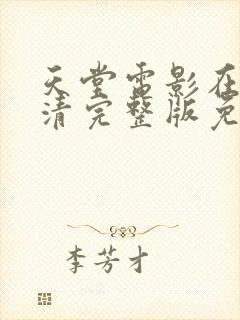 天堂雷影在
清完整版免
李芳才